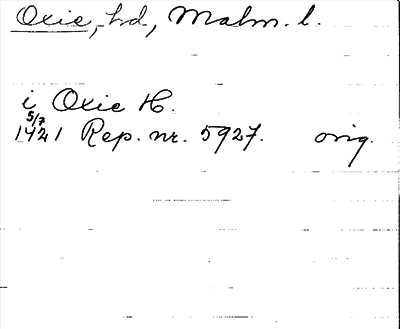 Oxie, hd, Malm. l.
i Oxie H.
5/7
1421 Rep. nr. 5927. orig.